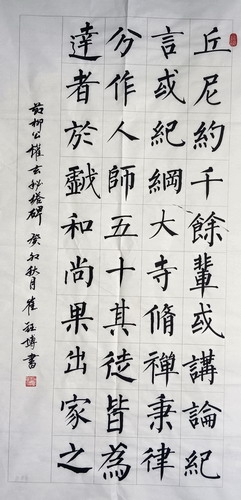 丘尼約千餘輩或講論紀
言或紀綱大寺脩禪秉律
分作人師五十其徒皆為
達者於戲和尚果出家之
柳公權玄秘塔碑 癸卯秋月 崔博書